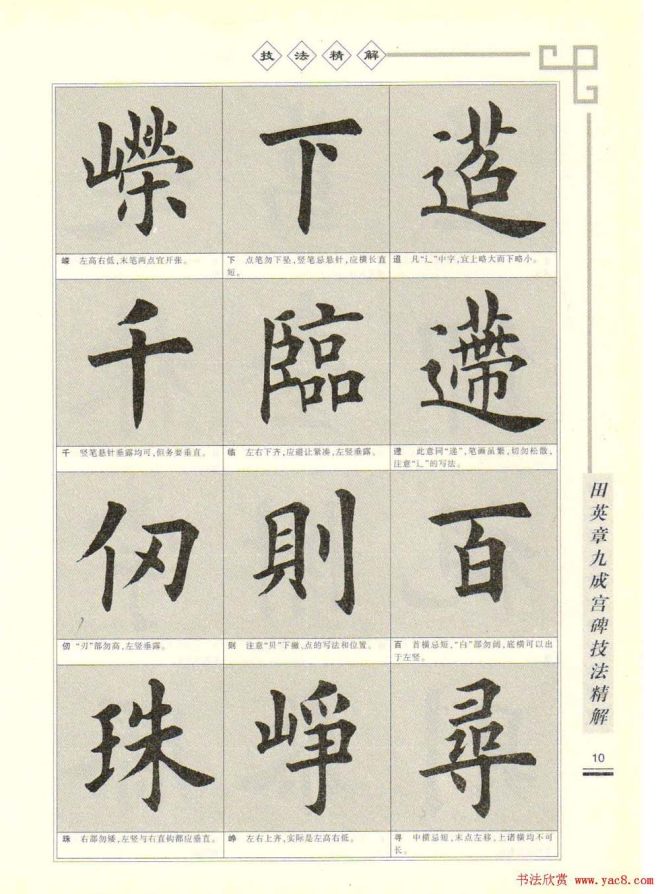 技法精解
迢
迢 凡“辶”中字,宜上略大而下略小。
遰
遰 此意同“递”,笔画虽繁,切勿松散,
注意“辶”的写法。
百
百 首横忌短,“白”部勿阔,底横可以出
于左竖。
尋
寻 中横忌短,末点左移,上诸横均不可
长。
下
下 点笔勿下坠,竖笔忌悬针,应横长直
短。
臨
临 左右下齐,应避让紧凑,左竖垂露。
則
则 注意“贝”下撇、点的写法和位置。
崢
峥 左右上齐,实际是左高右低。
嶸
嵘 左高右低,末笔两点宜开张。
千
千 竖笔悬针垂露均可,但务要垂直。
仞
仞 “刃”部勿高,左竖垂露。
珠
珠 右部勿矮,左竖与右直钩都应垂直。
田英章九成宫碑技法精解
10
书法欣赏 www.yac8.com